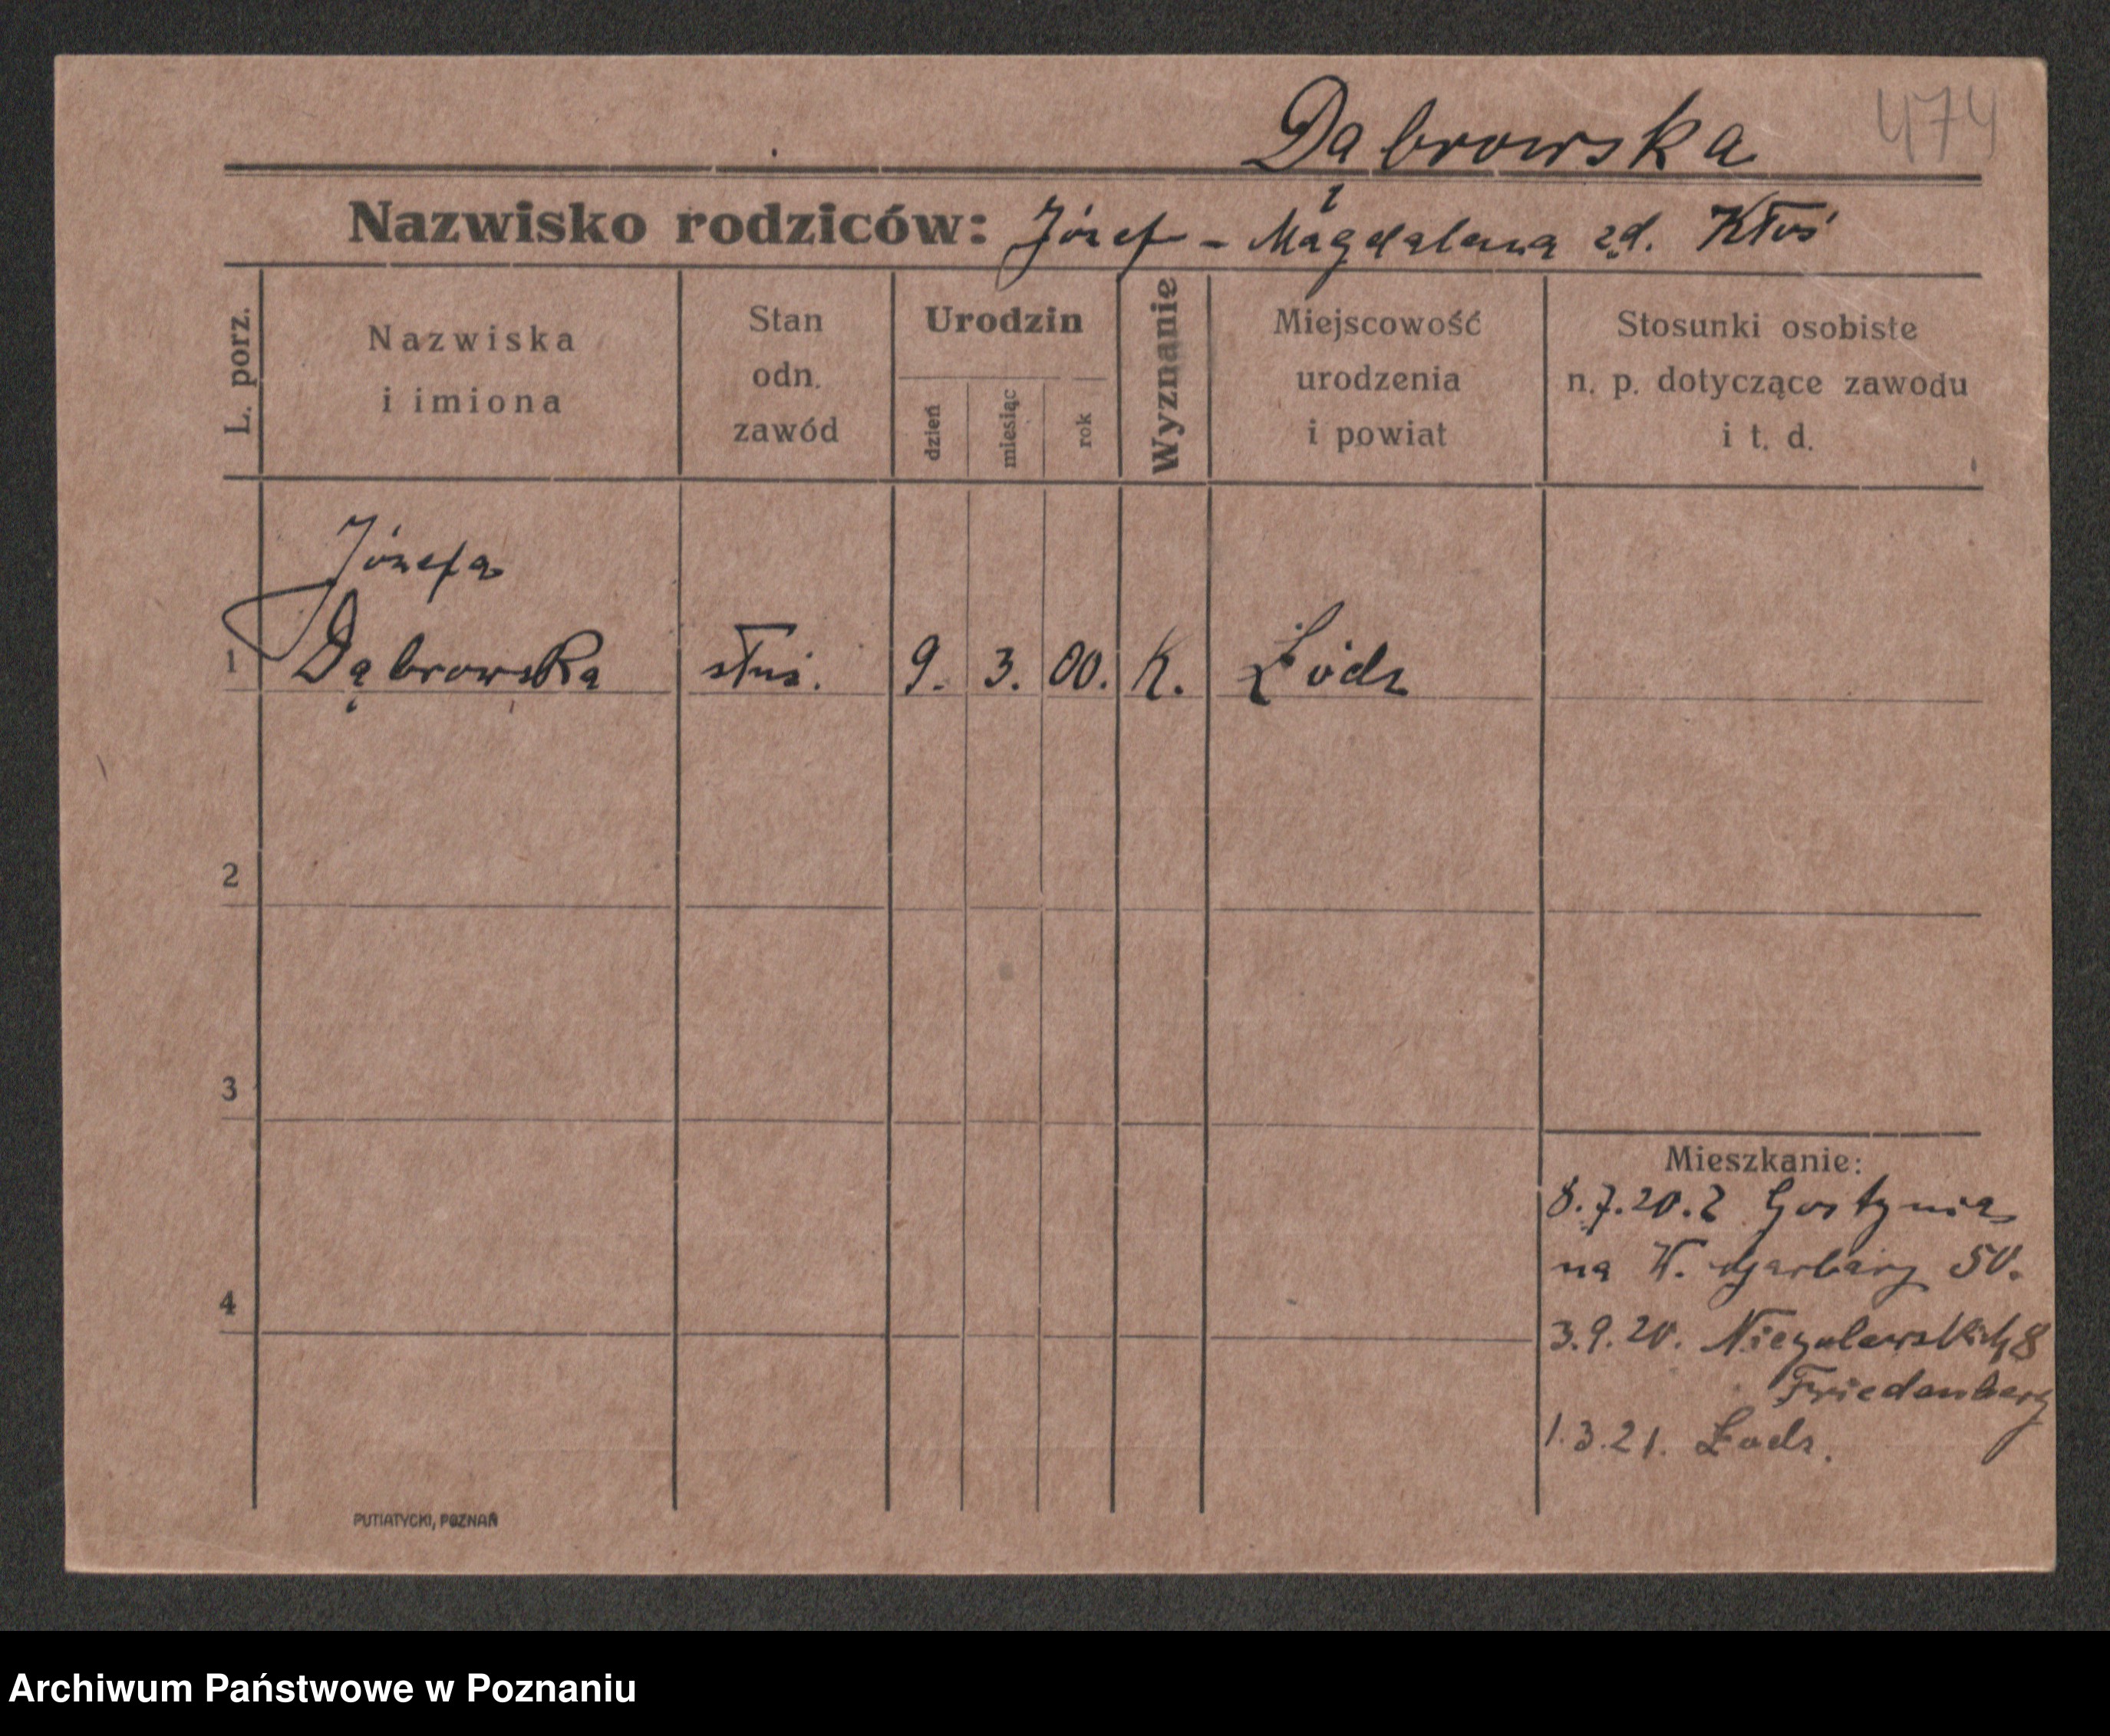 Dąbrowska 474
Nazwisko rodziców: Józef - Magdalena zd. Kłos
L. porz.
Nazwiska
i imiona
Stan
odn.
zawód
Urodzin
dzień
miesiąc
rok
Wyznanie
Miejscowość
urodzenia
i powiat
Stosunki osobiste
n. p. dotyczące zawodu
i t. d.
Józefa
1 Dąbrowska służ. 9. 3. 00. K. Łódz
2
3
4
Mieszkanie:
8.7.20. z Gostynia
na W. Garbary 50.
3.9.20. Niegolewskich 8
Friedenberg
1.3.21. Łodz.
PUTIATYCKI, POZNAŃ
Archiwum Państwowe w Poznaniu